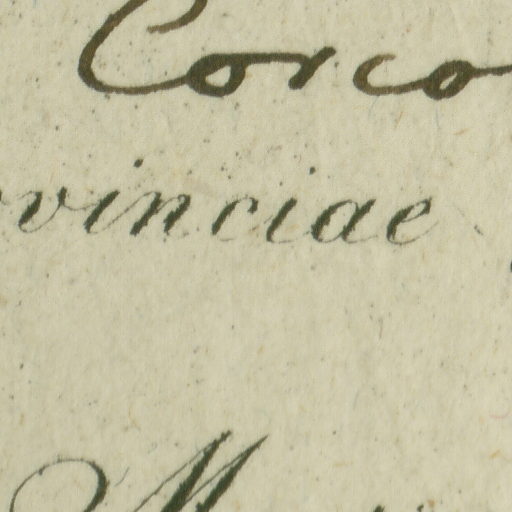 Corco
vinciae
M